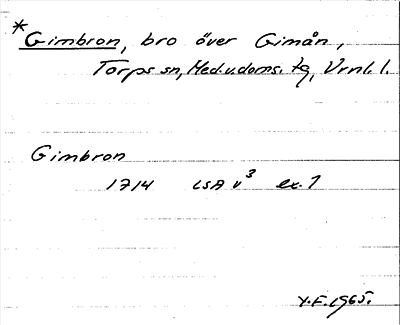 * Gimbron, bro över Gimån,
Torps sn, Med.v.doms. tg, Vrnl. l.
Gimbron
1714 LSA v³ ex. 1
Y.F. 1965.